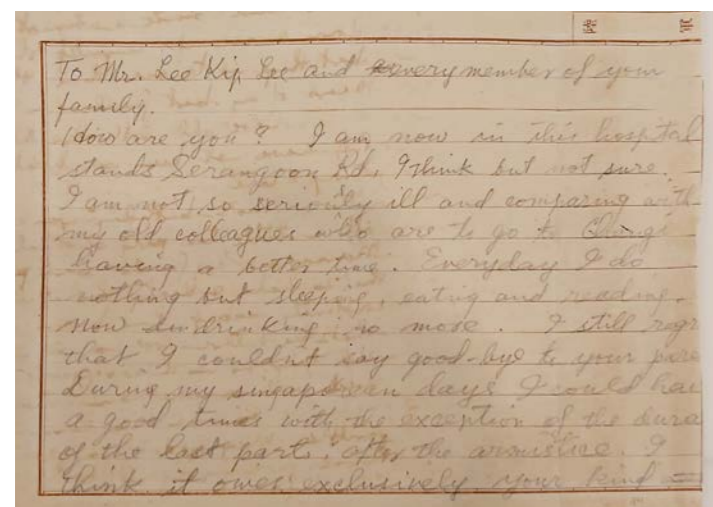 To Mr. Lee Kip Lee and every member of your
family.
How are you? I am now in this hospital
stands Serangoon Rd, I think but not sure.
I am not so seriously ill and comparing with
my old colleagues who are to go to Changi
having a better time. Everyday I do
nothing but sleeping, eating and reading.
Now drinking no more. I still regr
that I couldn't say good-bye to your pare
During my singaporean days I could hav
a good times with the exception of the dura
of the last part, after the armistice. I
think it owes exclusively your kind